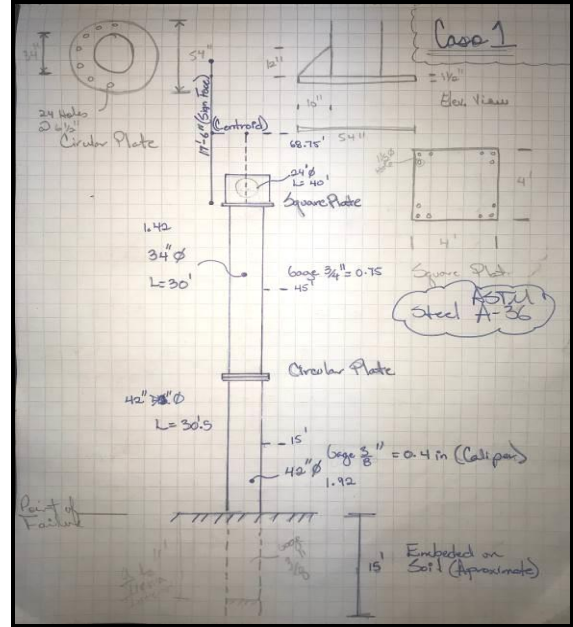 Caso 1
34"
54"
12"
= 1½"
Elev. View
10"
54"
24 Holes
Circular Plate
17'-6" (Sign Face)
(Centroid)
68.75'
24"Ø
L= 40'
Square Plate
4'
4'
Square Plat.
1.42
34"Ø
L=30'
Gage 3/4" = 0.75
45'
ASTM
Steel A-36
Circular Plate
42" Ø
L= 30'.5
15'
Gage 3/8" = 0.4 in (Caliper)
42"Ø
1.92
Point of
Failure
15'
Embeded on
Soil (Aproximate)